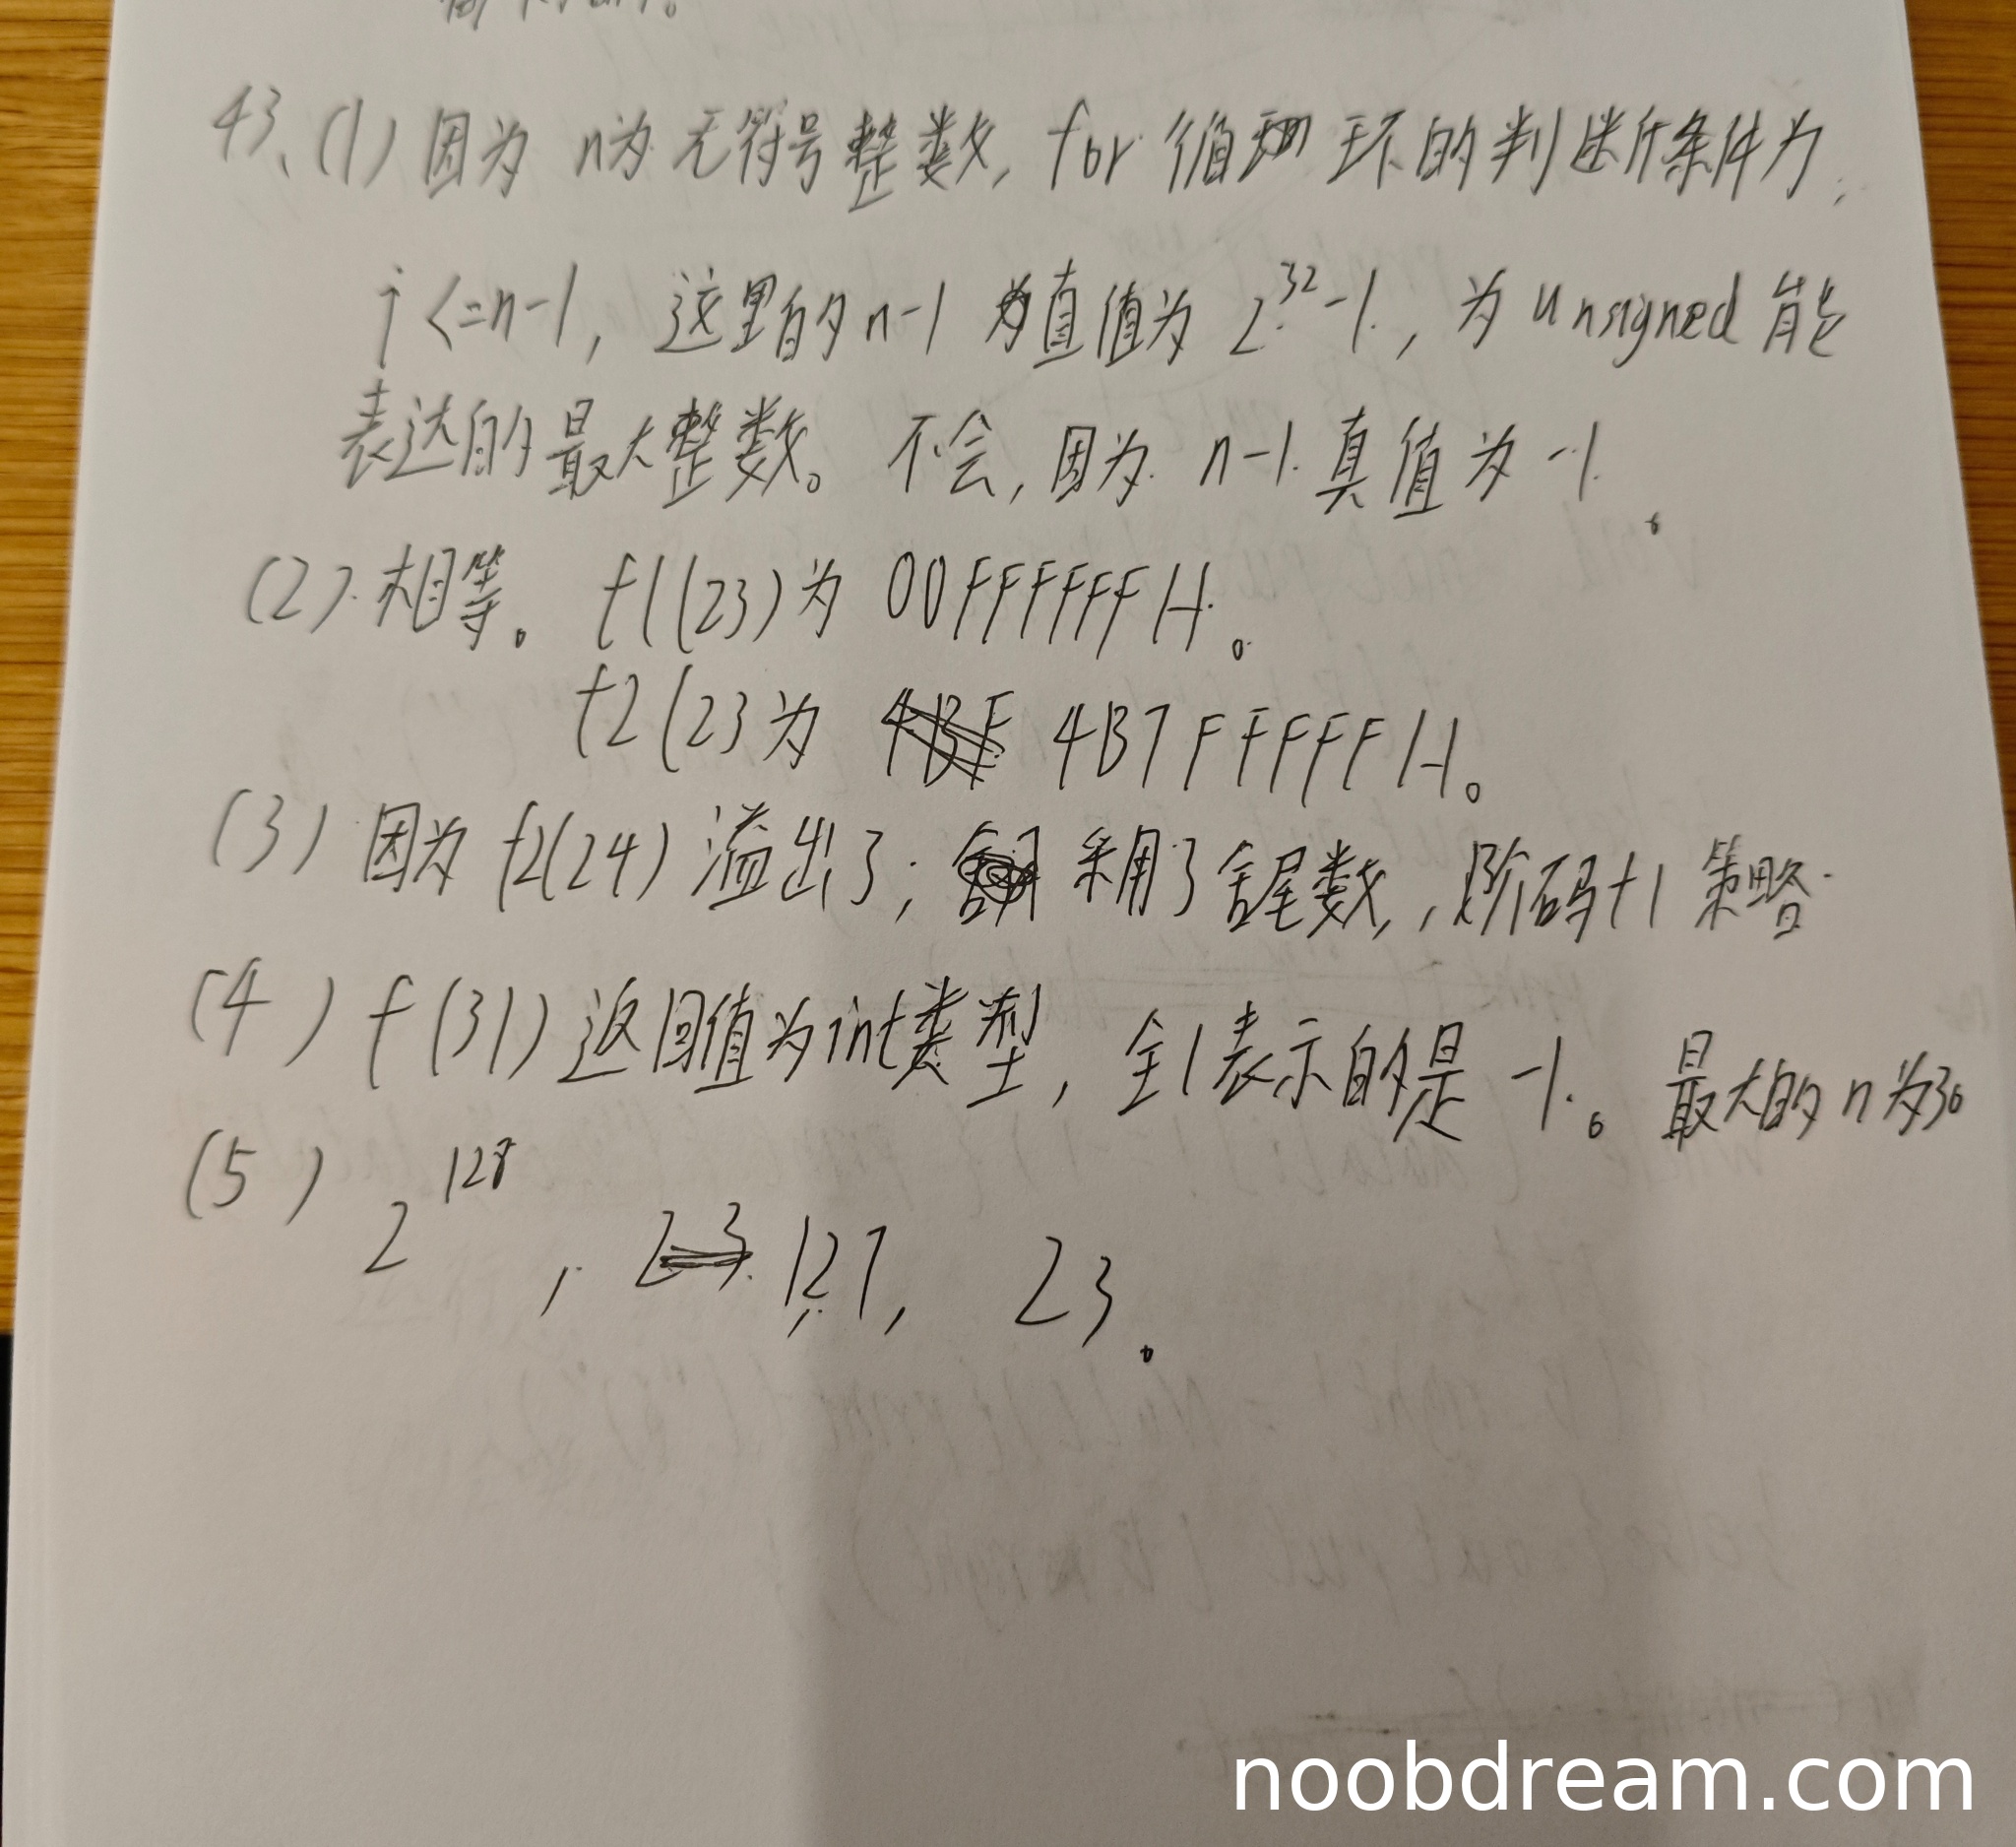 43、(1) 因为 n为无符号整数, for 循环的判断条件为,
i<=n-1, 这里的n-1 为真值为 2^32-1, 为unsigned 能
表达的最大整数。 不会, 因为 n-1 真值为 -1 。
(2) 相等。 f1(23)为 00FFFFFFH。
f2(23为 4B7FFFFFH。
(3) 因为 f2(24) 溢出了; 采用了舍尾数, 阶码+1 策略
(4) f(31)返回值为int类型, 全1表示的是 -1 。 最大的n为30
(5) 2^128 , 127, 23 。
noobdream.com